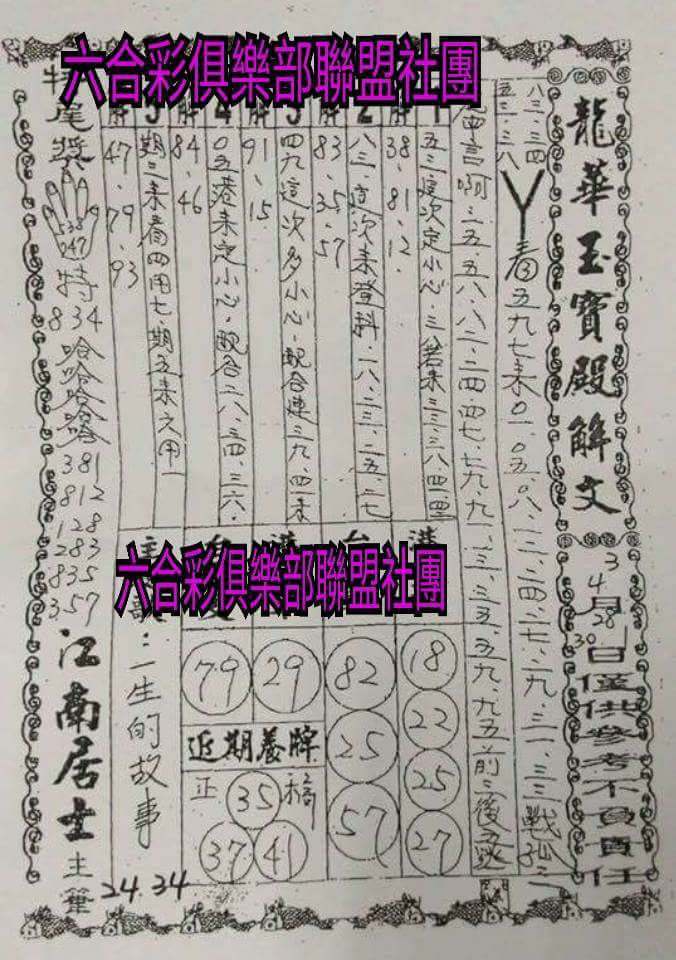 六合彩俱樂部聯盟社團
龍華玉寶殿解文
3
4月28日
30
僅供參考不負責任
八三.三四
五三.三八
看③五九七来0一.0五.0八.一三.二四.二七.二九.三一.三三戰
啊.三五.五八.八二.二四.四七.七九.九一.三三.五九.九五前三後五
1
五.三這次定小心.三若来三三.三八.四四
解
38.81.12.
2
八三.這次来登料.一八.二三.二五.二七
解
83.35.57
3
四九這次多小心.配合連三九.四来
解
91.15
4
0五港来定小心.配合二八.三四.三六.
解
84.46
5
期三来看四用七期五来六用一
解
47.79.93
特尾獎
538
247
特
834
哈哈哈哈
381
812
128
283
835
357
江南居士
主筆
港
18
22
25
27
台
82
25
57
29
79
近期養牌
正
35
稿
37
41
六合彩俱樂部聯盟社團
主
歌:一生的故事
24.34